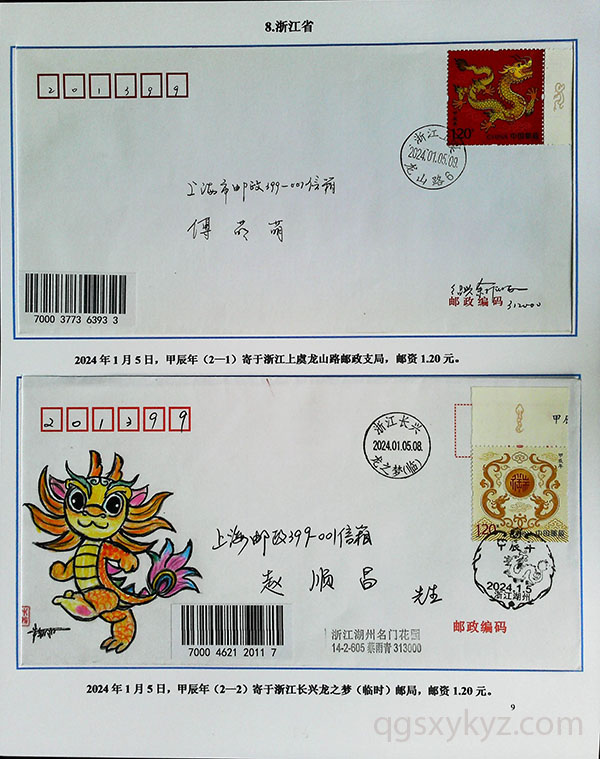 8.浙江省
201399
120
中国邮政
浙江上虞
2024.01.05.09
龙山路6
上海市邮政399-001信箱
傅
萌
7000 3773 6393 3
邮政编码
312000
2024 年 1 月 5 日，甲辰年（2—1）寄于浙江上虞龙山路邮政支局，邮资 1.20 元。
201399
浙江长兴
2024.01.05.08.
龙之梦(临)
甲辰
120
中国邮政
甲辰年
2024.1.5
浙江湖州
上海邮政399-001信箱
赵 顺 昌 先生
7000 4621 2011 7
浙江湖州名门花园
14-2-605 蔡雨青 313000
邮政编码
2024 年 1 月 5 日，甲辰年（2—2）寄于浙江长兴龙之梦（临时）邮局，邮资 1.20 元。
9
qgsxykyz.com